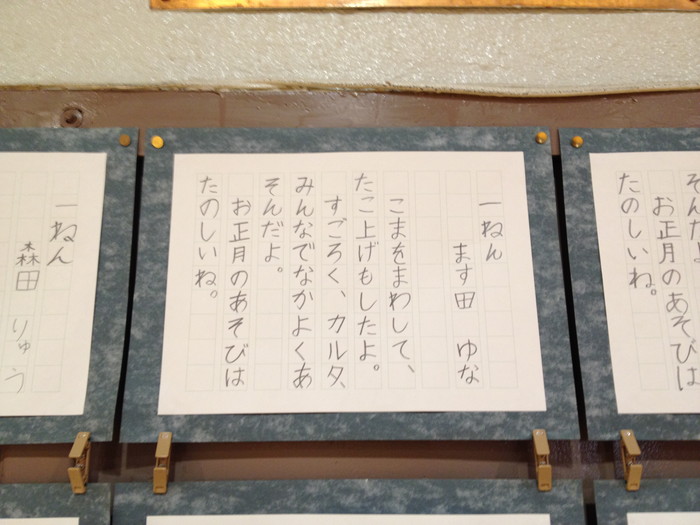 そんだよ。
お正月のあそびは
たのしいね。
一ねん
ます田 ゆな
こまをまわして、
たこ上げもしたよ。
すごろく、カルタ、
みんなでなかよくあ
そんだよ。
お正月のあそびは
たのしいね。
一ねん
森田 りゅう